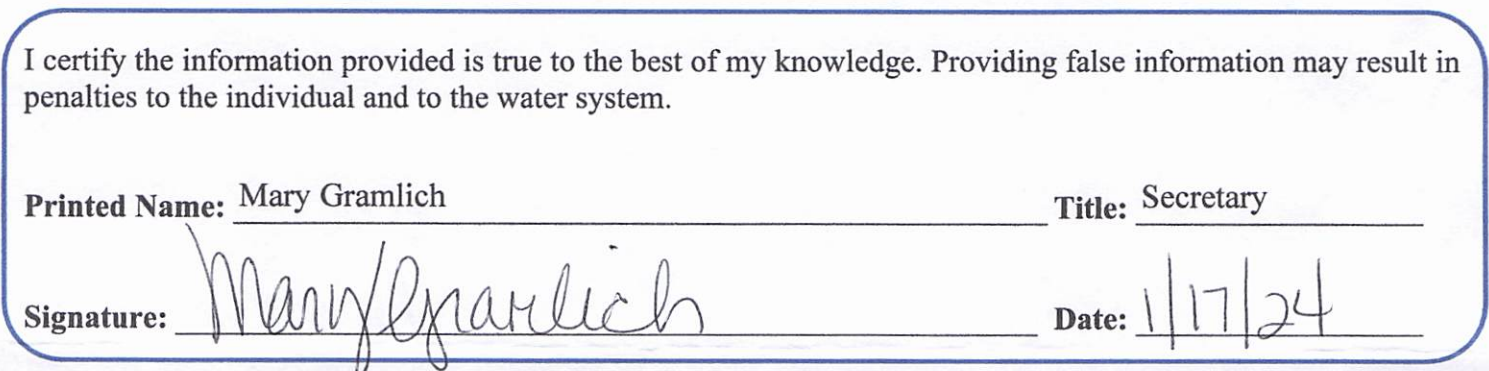 I certify the information provided is true to the best of my knowledge. Providing false information may result in
penalties to the individual and to the water system.
Printed Name: Mary Gramlich Title: Secretary
Signature: Mary Gramlich Date: 1/17/24